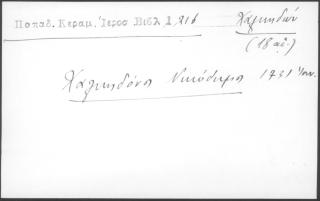 Παπαδ. Κεραμ. Ἱεροσ. Βιβλ 1,216
Χαλκηδών
(18 αἰ.)
Χαλκηδόνος Νικόδημος 1731 Ἰουν.